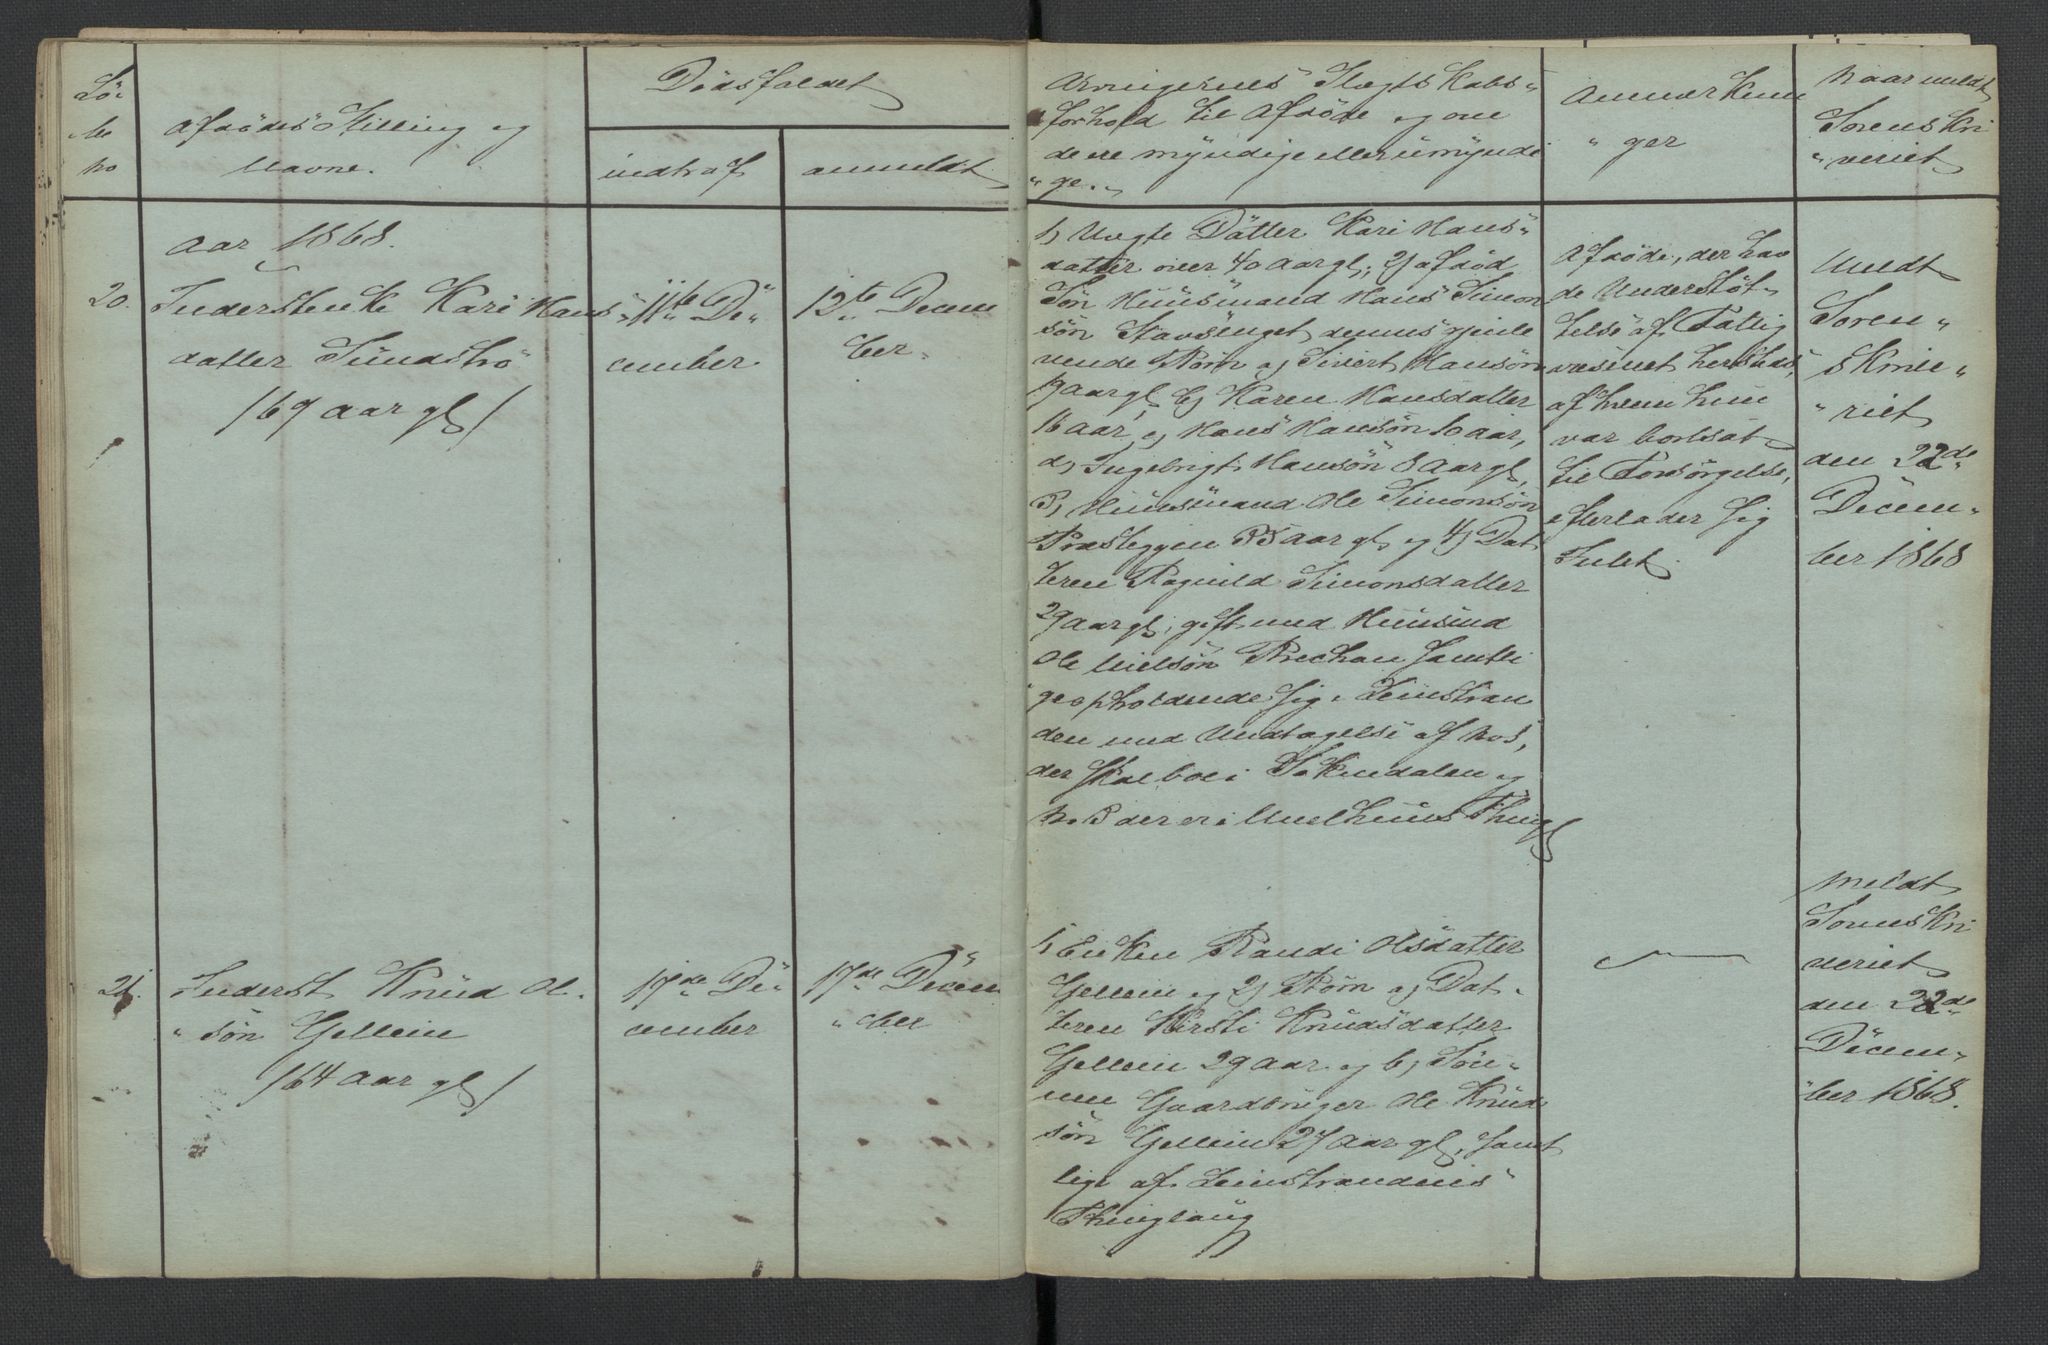 Lö-
be
No
Afdödes Stilling og
Navne.
Dödsfaldet
indtraf
anmeldt
Arvingernes Slægtskabs-
forhold til Afdöde og om
de ere myndige eller umyndi-
ge.
Anmærknin
"ger
Naar meldt
Sorenskri
"veriet
Aar 1868.
20.
Inderstenke Kari Hans-
datter Sundströ
/69 aar gl/
11te De-
cember
12te Decem
ber
1, Uægte Datter Kari Hans-
datter over 40 aar gl, 2, afdöd
Sön Huusmand Hans Simon
sön Stavsinget dennes gjenle
vende Börn a, Sivert Hansön
19 aar gl, b, Karen Hansdatter
16 aar, c, Hans Hansön 10 aar,
d, Ingebrigt Hansön 8 aar gl,
3, Huusmand Ole Simonsön
Præsteggen 35 aar gl, og 4, Dat
teren Ragnild Simonsdatter
29 aar gl, gift med Huusmd
Ole Nielsön Brechan samtli
ge opholdende sig i Leinstran
den med Undtagelse af No 1,
der skal boe i Soknedalen og
No 3 der er i Melhuus Thingl
Afdöde, der hav
de Understöt-
telse af Fattig
væsenet herstads,
af hvem hun
var bortsat
til Forsörgelse,
efterlader sig
Intet.
Meldt
Soren-
skrive-
"riet
den 22de
Decem-
ber 1868
21.
Inderst Knud Ol-
"sön Gellein
/64 aar gl/
17de De-
cember
17de Decem
"ber
1, Enken Randi Olsdatter
Gellein og 2, Börn a, Dat-
teren Kirsti Knudsdatter
Gellein 29 aar og b, Sön-
nen Gaardbruger Ole Knud
sön Gellein 27 aar gl, samt
lige af Leinstrandens
Thinglaug
meldt
Sorenskri
veriet
den 22de
Decem-
ber 1868.